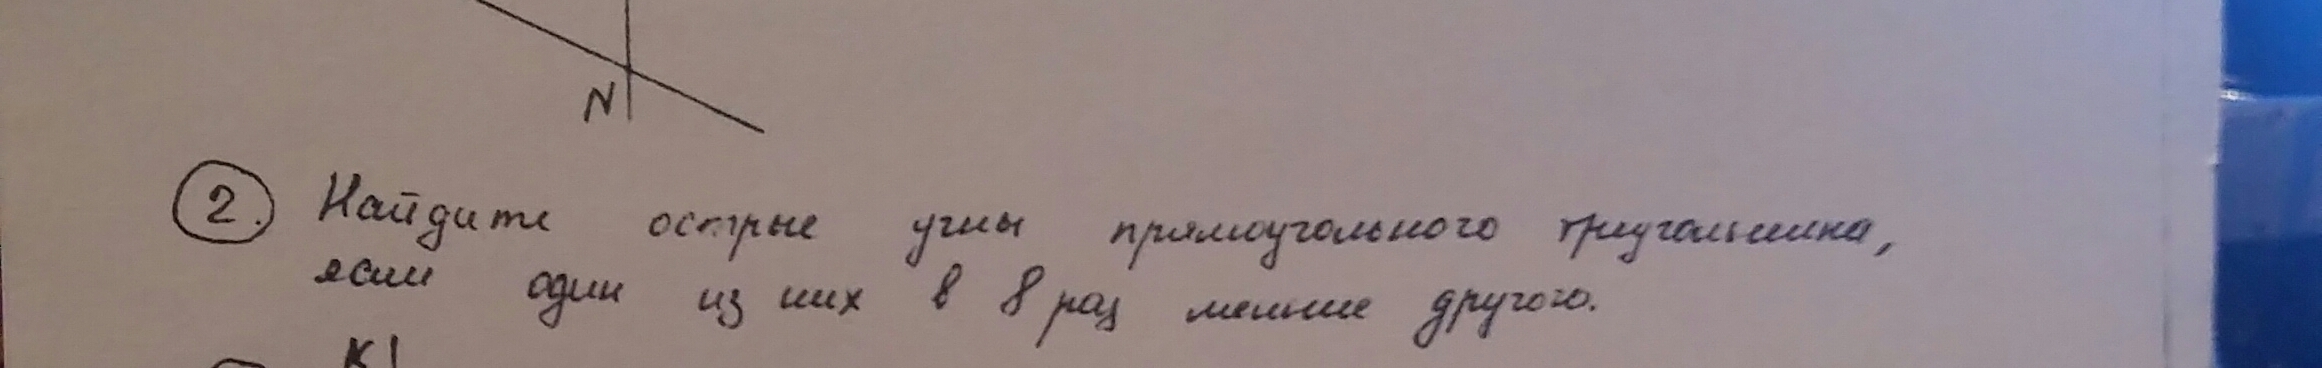 N
2. Найдите острые углы прямоугольного треугольника,
если один из них в 8 раз меньше другого.
K